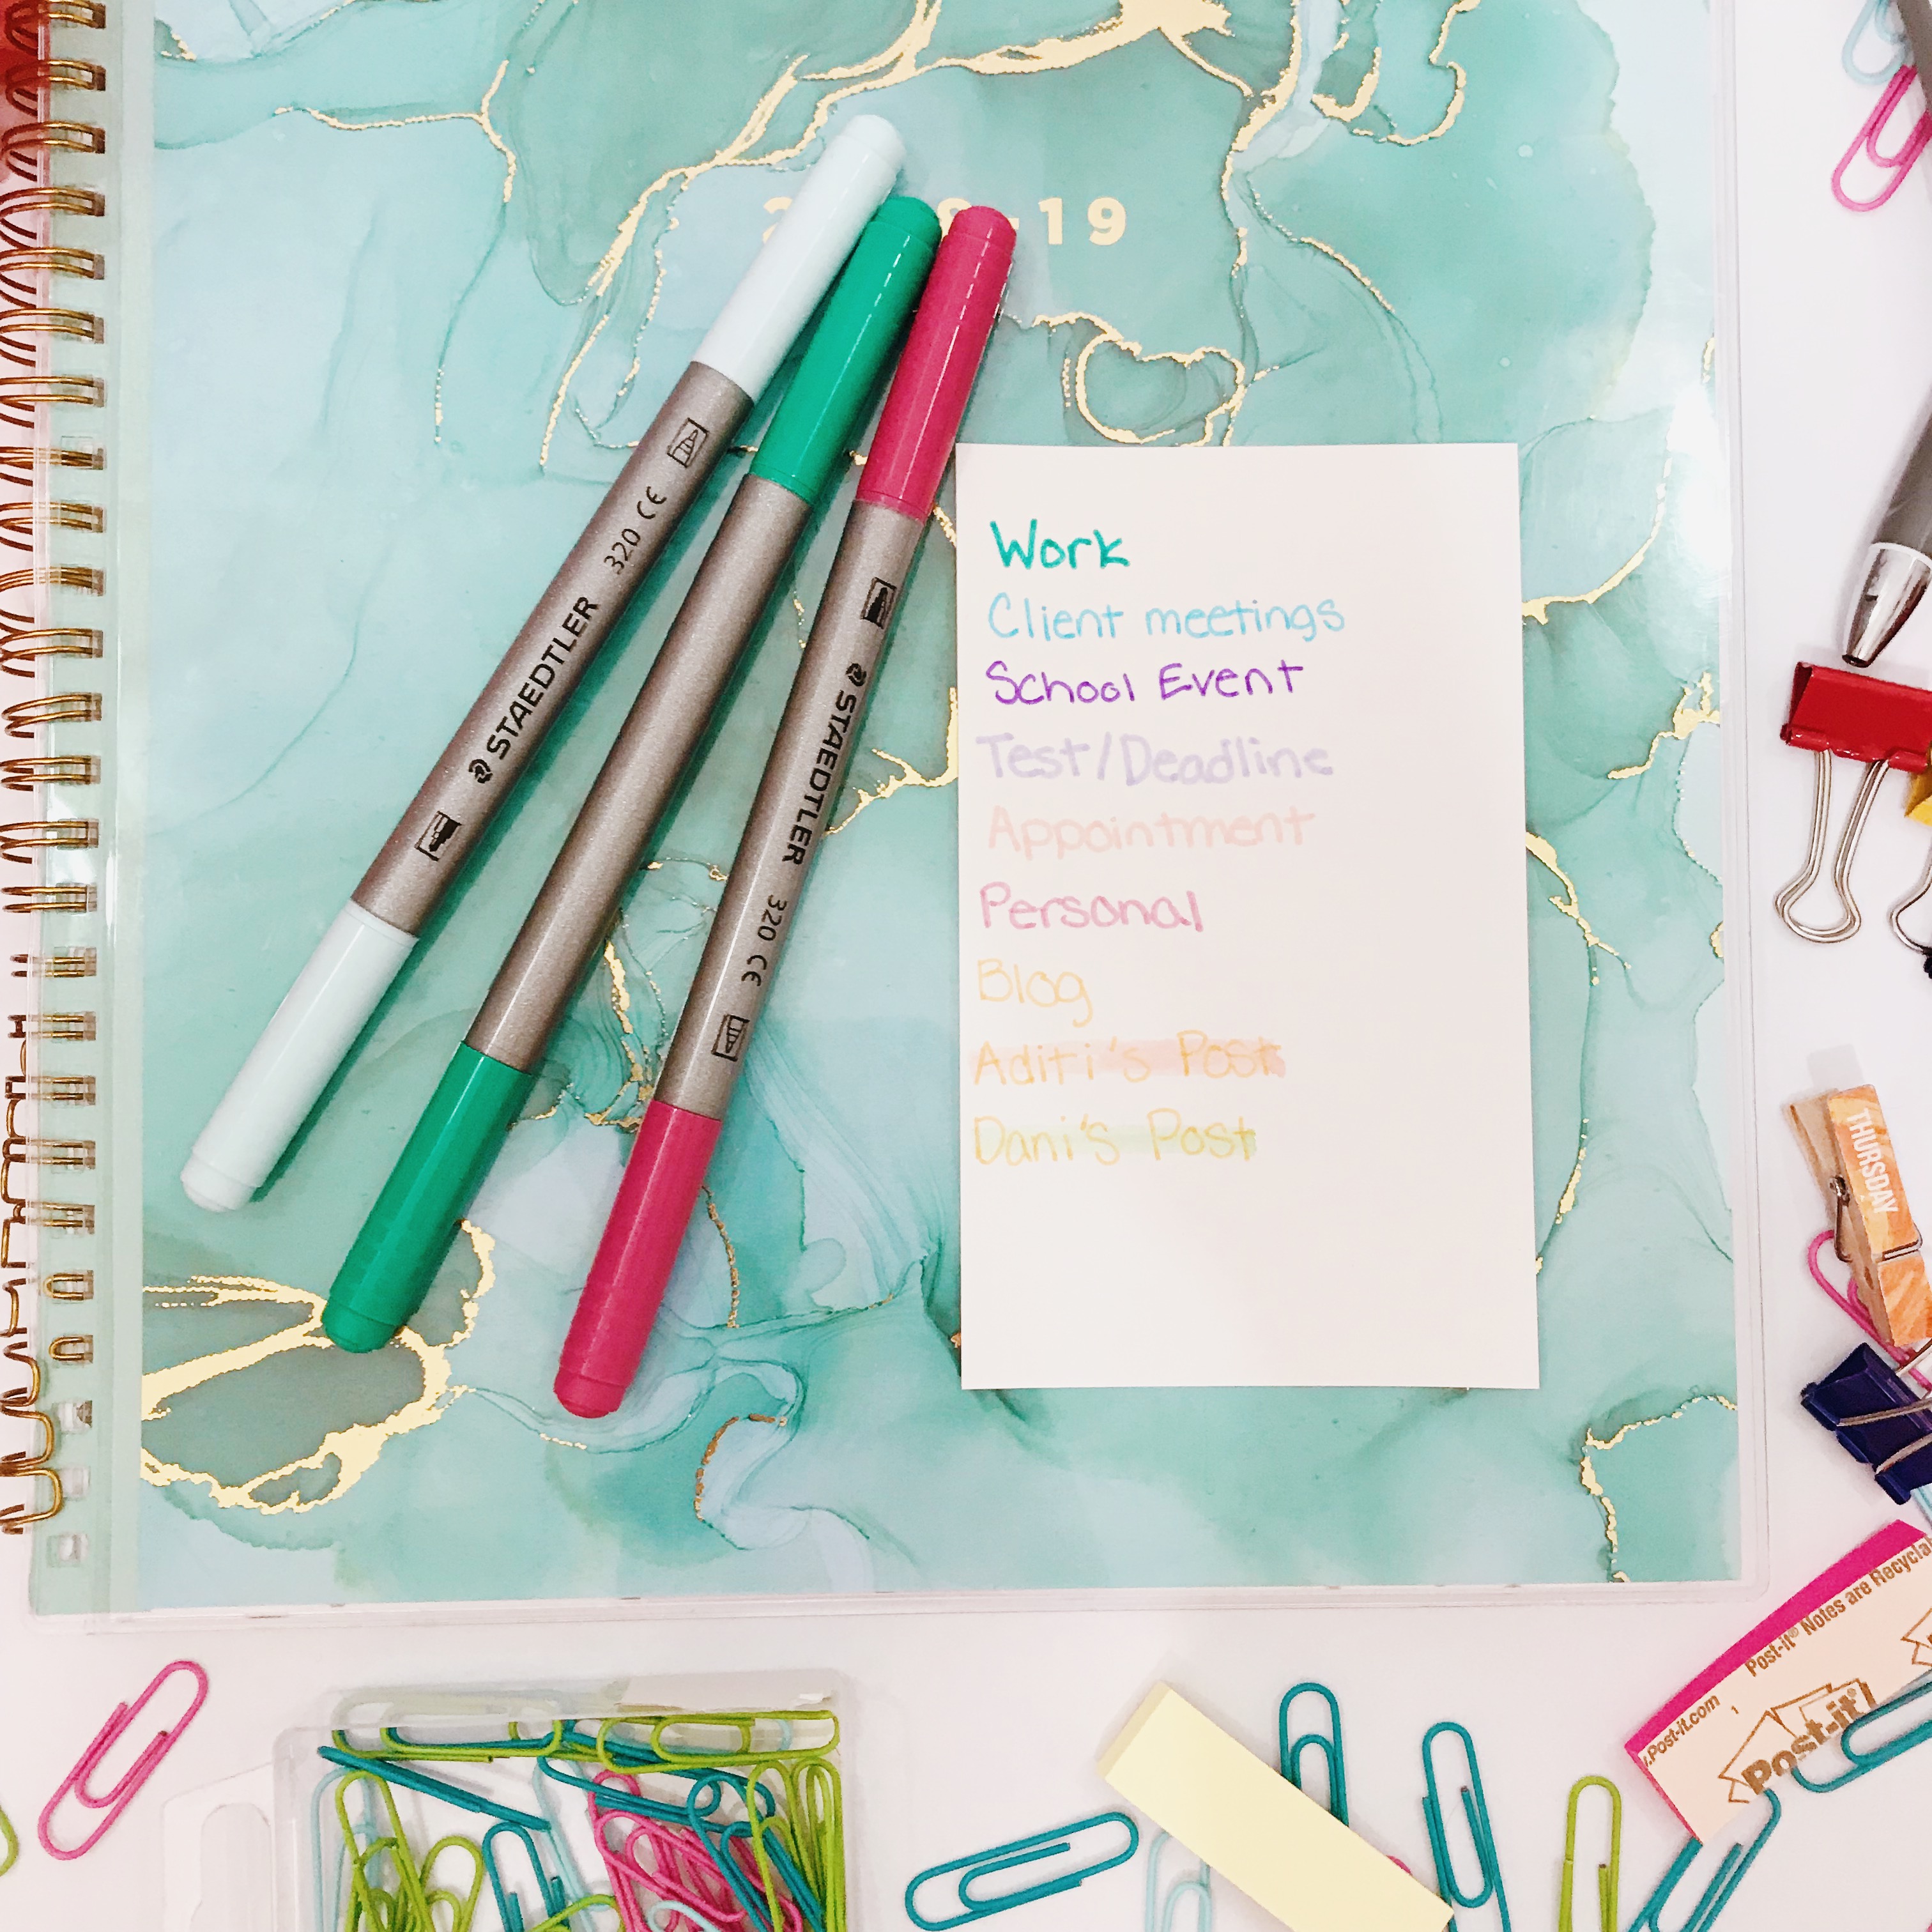 19
STAEDTLER 320 CE
STAEDTLER 320 CE
Work
Client meetings
School Event
Test/Deadline
Appointment
Personal
Blog
Aditi's Post
Dani's Post
THURSDAY
Post-it® Notes are
Post-it.com
Post-it®